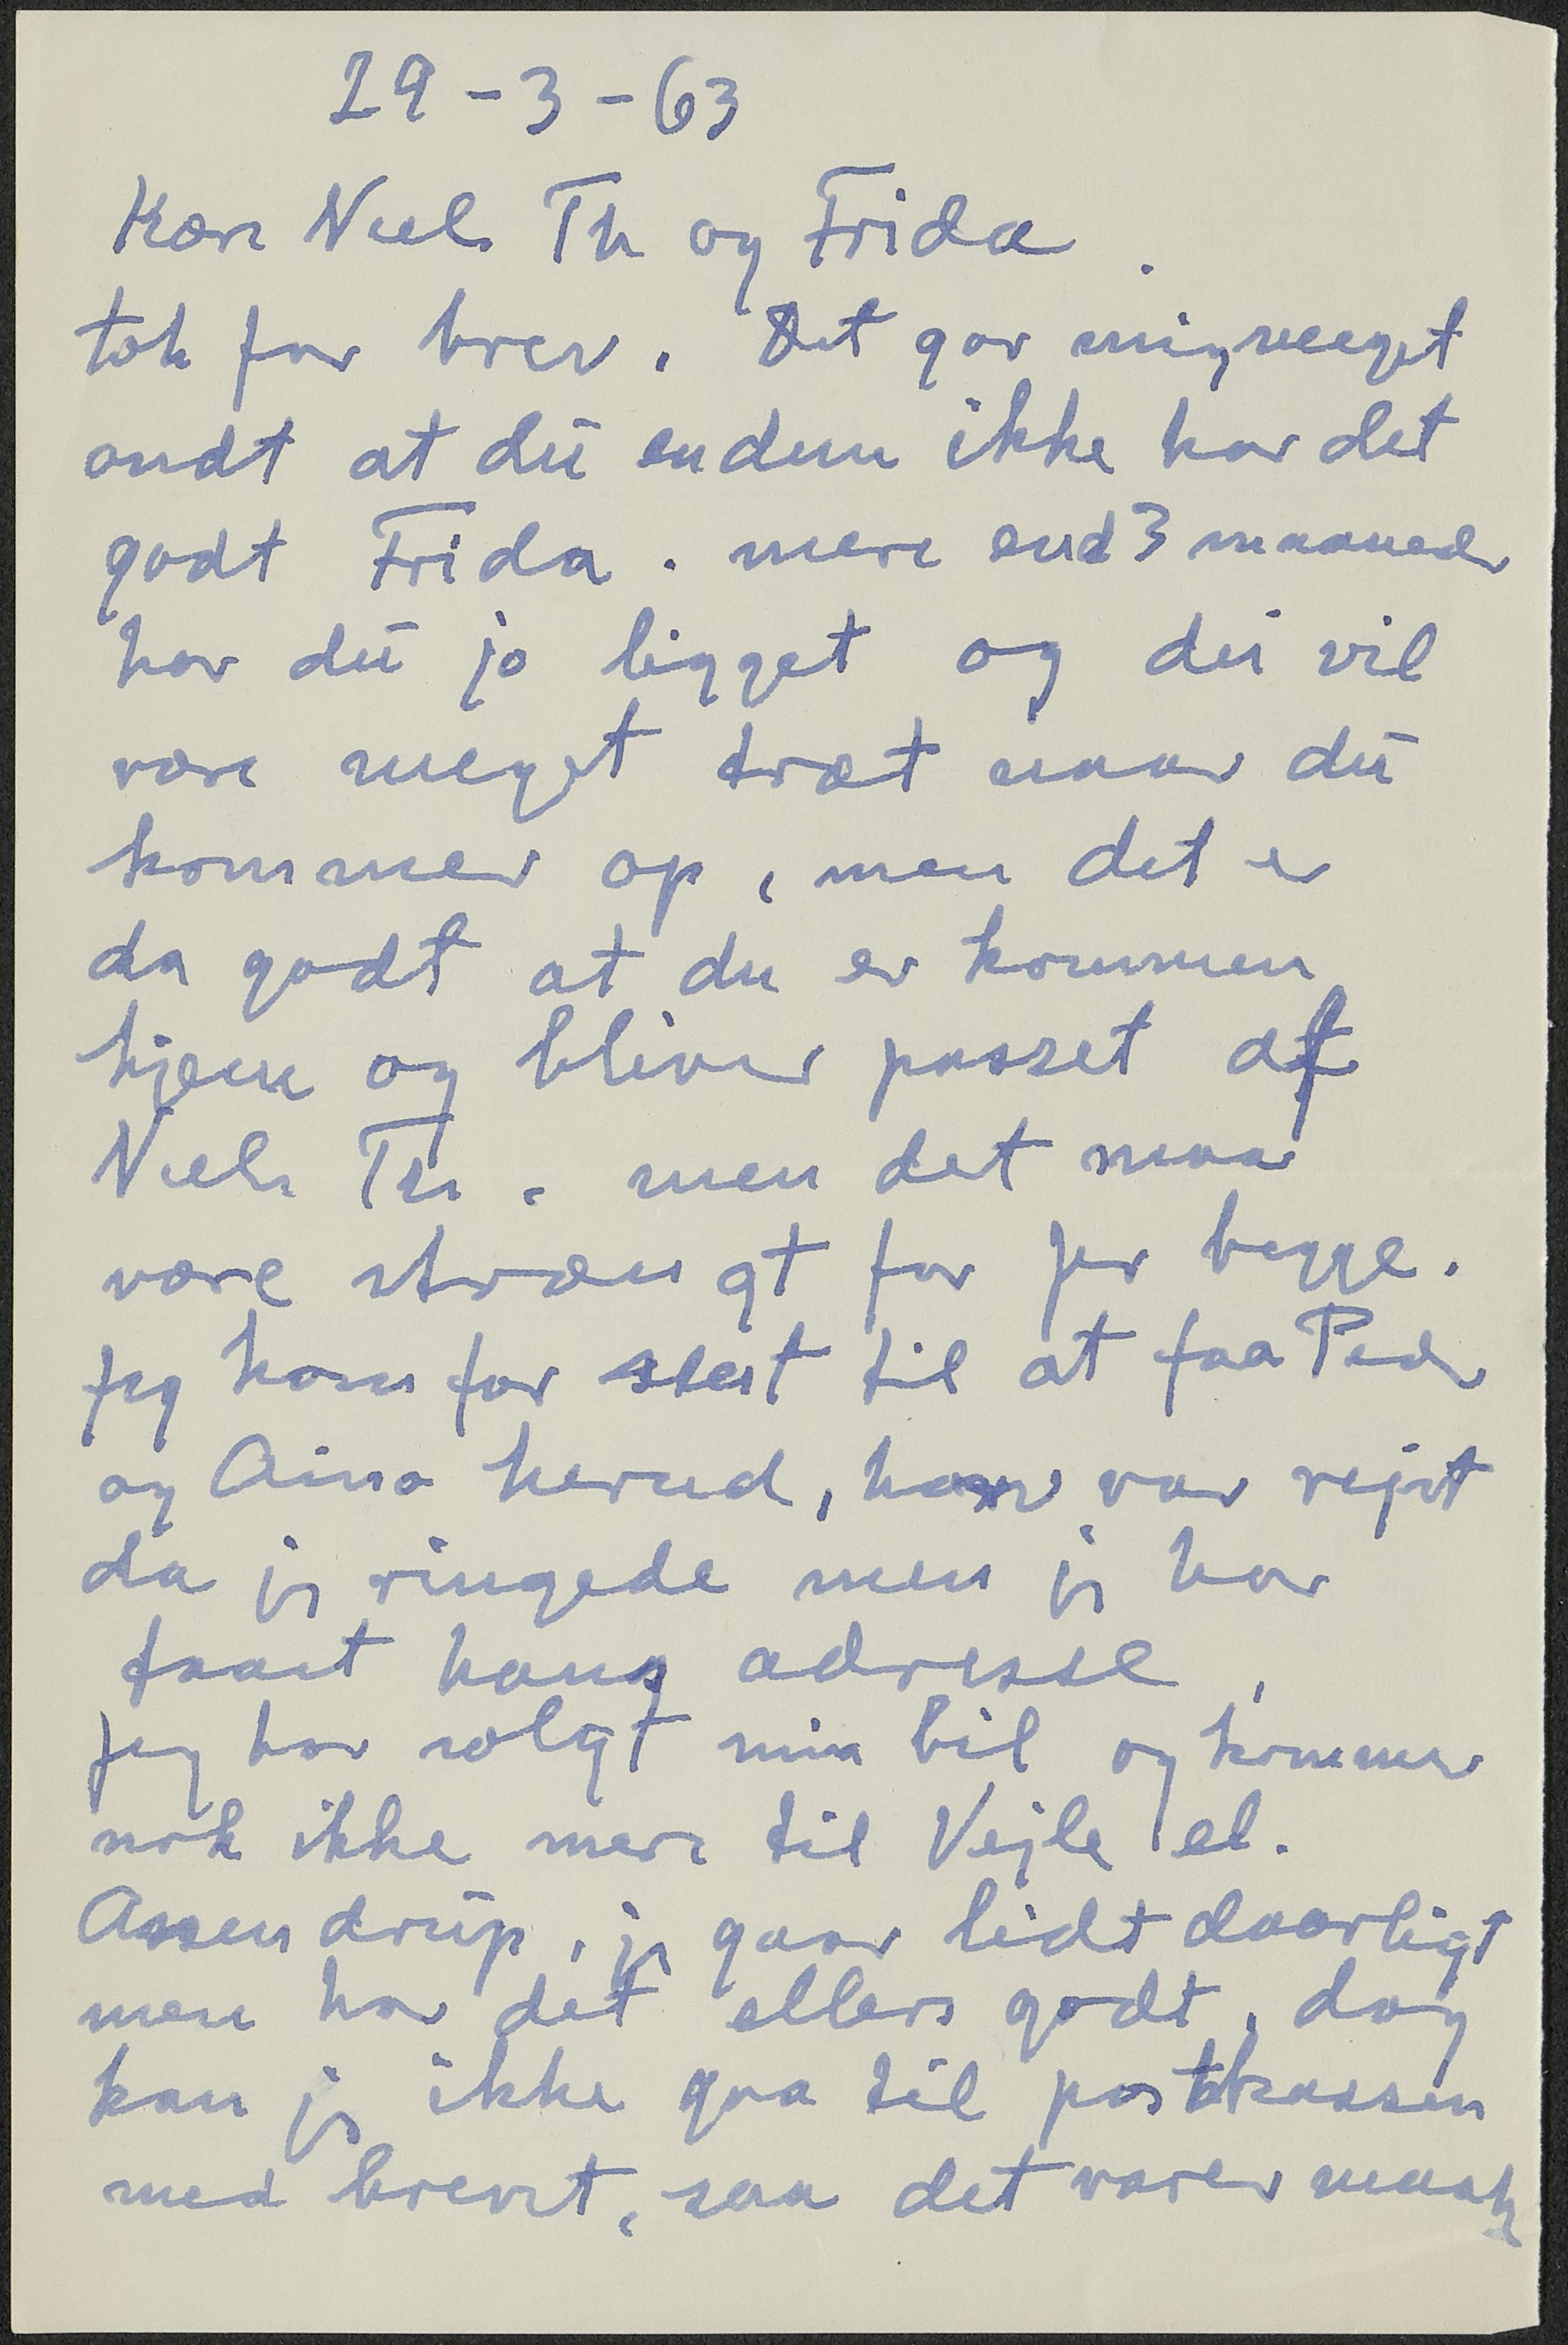 29-3-63
Kære Niels Th og Frida.
tak for brev. Det gør mig meeget
ondt at du endnu ikke har det
godt Frida. mere end 3 maaneder
har du jo ligget og du vil
være meget træt naar du
kommer op, men det er
da godt at du er kommen
hjem og bliver passet af
Niels Th. men det maa
være strængt for jer begge.
Jeg kom for sent til at faa Peder
og Aino herud, han var rejst
da jeg ringede men jeg har
faaet hans adresse,
Jeg har solgt min bil og kommer
nok ikke mere til Vejle el.
Assendrup, jeg gaar lidt daarligt
men har det ellers godt, dog
kan jeg ikke gaa til postkassen
med brevet, saa det varer maaske